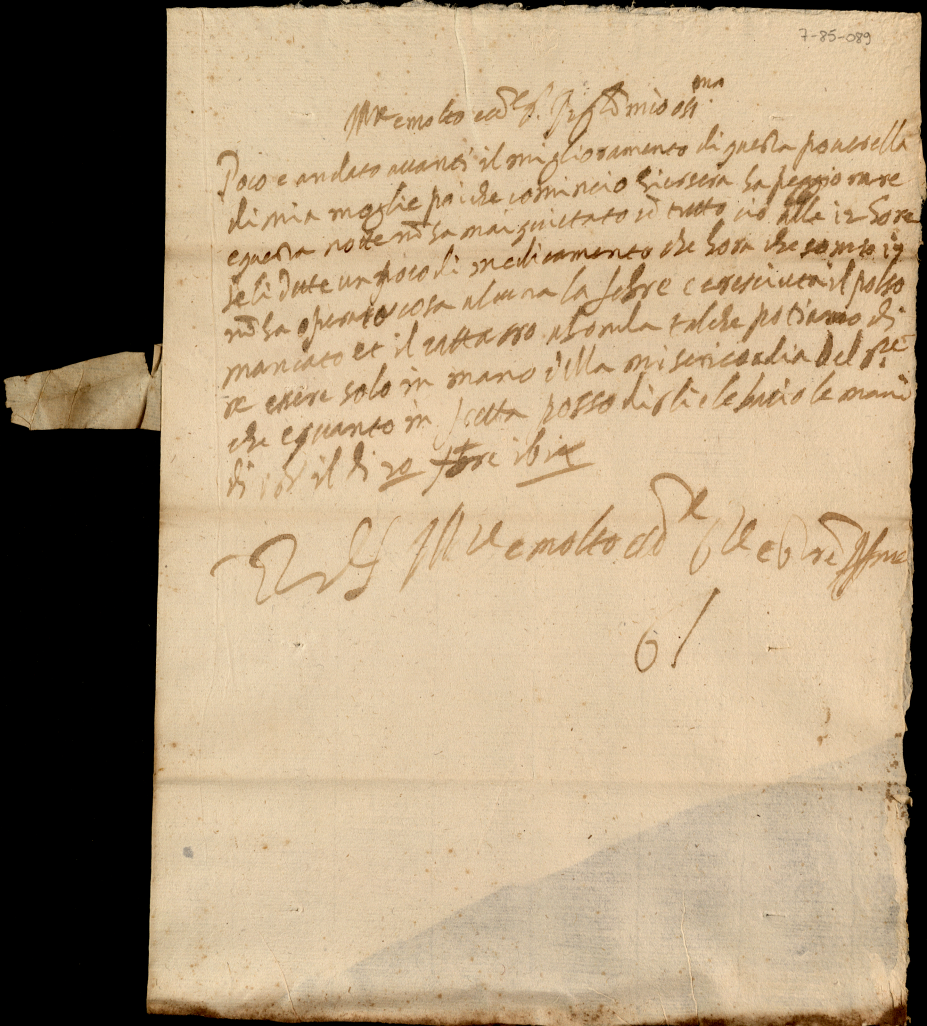 7-85-089
Ill.re e molto ecc.te s.r mio oss.mo
Poco e andato avanti il miglioramento di questa poverella
di mia moglie poi che comincio hiersera ha peggiorare
e questa notte nō ha mai quietato cō tutto cio alle 12 hore
se li dette un poco di medicamento che hora che sono 19
nō ha operato cosa alcuna la febre e cresciuta il polso
mancato et il cattarro abonda talche potiamo di
re essere solo in mano della misericordia del
che e quanto in fretta posso dirli e le bacio le mani
di il di 20 bre
Di V.S. Ill.re e molto ecc.te